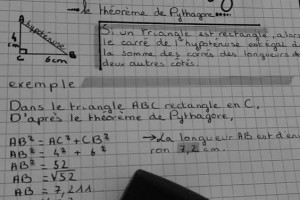 le théorème de Pythagore
Si un triangle est rectangle, alors
le carré de l'hypoténuse est égal à
la somme des carrés des longueurs de
deux autres côtés.
A
hypoténuse
4
cm
C
6cm
B
exemple
Dans le triangle ABC rectangle en C,
D'après le théorème de Pythagore,
AB² = AC² + CB²
AB² = 4² + 6²
AB² = 52
AB = √52
AB = 7,211
→ La longueur AB est d'env
ron 7,2 cm.